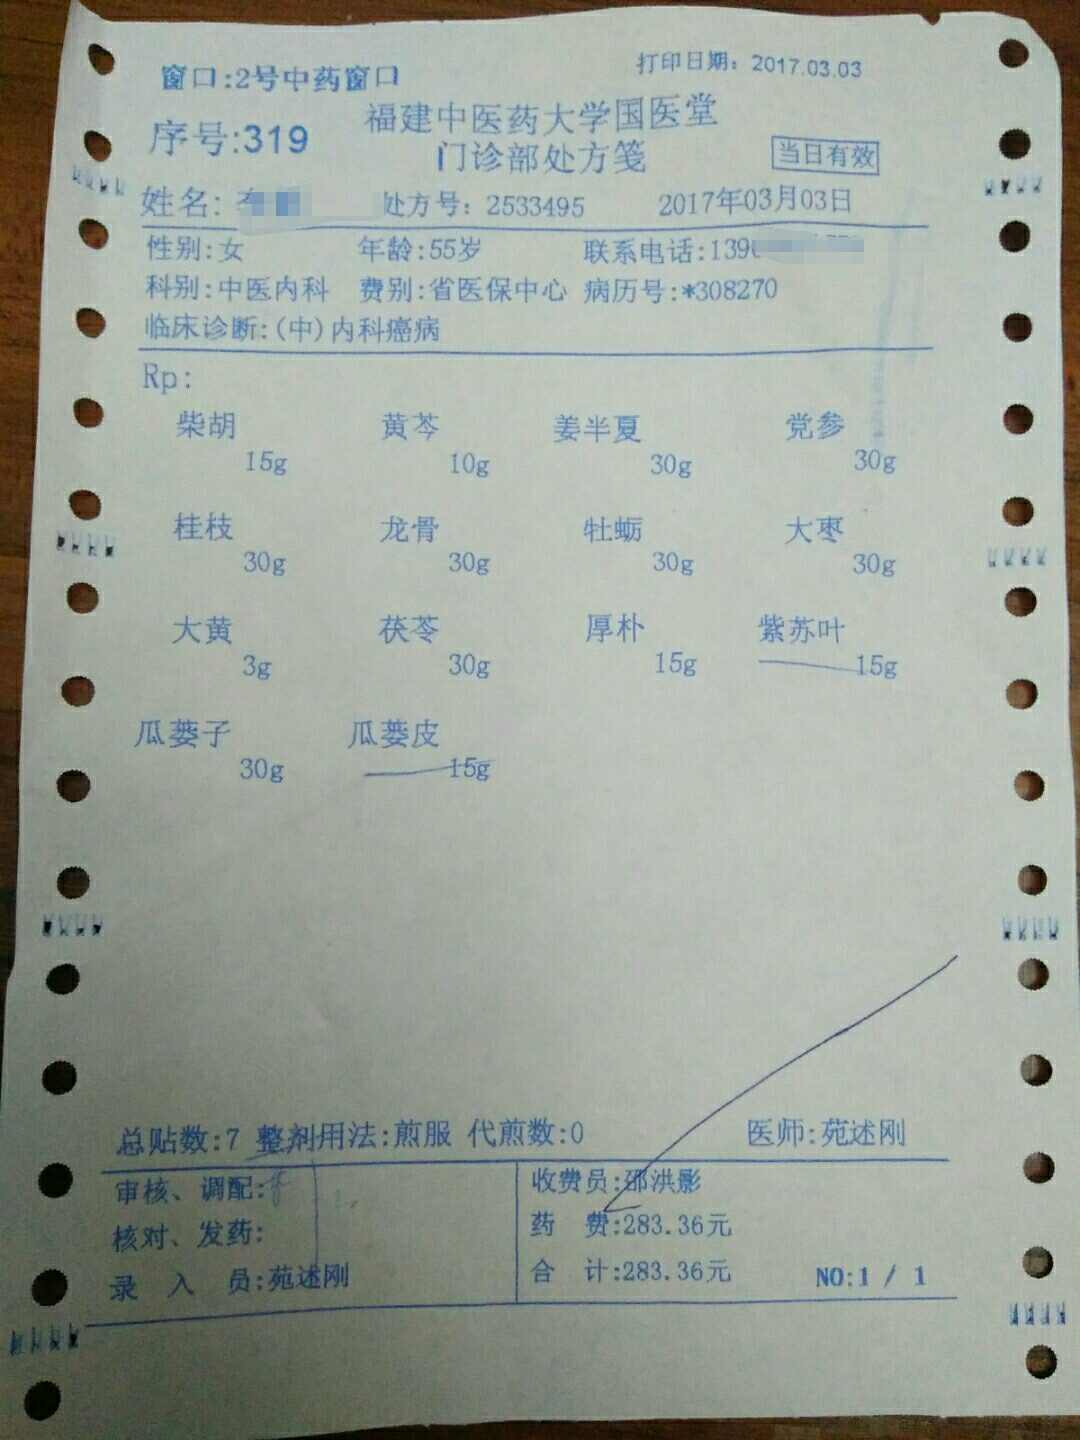 窗口:2号中药窗口
打印日期: 2017.03.03
序号:319
福建中医药大学国医堂
门诊部处方笺
当日有效
姓名: 处方号: 2533495 2017年03月03日
性别:女 年龄:55岁 联系电话:139
科别:中医内科 费别:省医保中心 病历号:*308270
临床诊断:(中)内科癌病
Rp:
柴胡 黄芩 姜半夏 党参
15g 10g 30g 30g
桂枝 龙骨 牡蛎 大枣
30g 30g 30g 30g
大黄 茯苓 厚朴 紫苏叶
3g 30g 15g 15g
瓜蒌子 瓜蒌皮
30g 15g
总贴数:7 整剂用法:煎服 代煎数:0 医师:苑述刚
审核、调配: 收费员:邵洪影
核对、发药: 药 费:283.36元
录 入 员:苑述刚 合 计:283.36元 NO:1 / 1